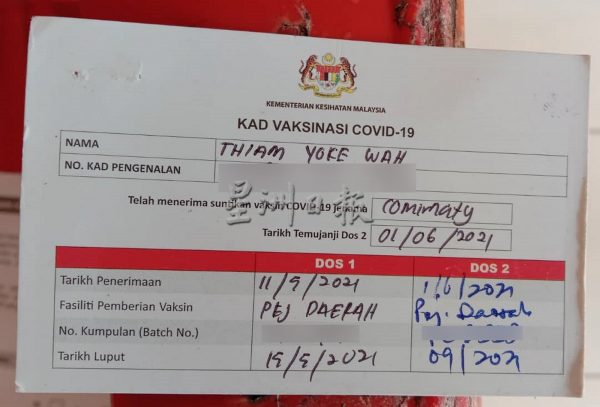 KEMENTERIAN KESIHATAN MALAYSIA
KAD VAKSINASI COVID-19
NAMA THIAM YOKE WAH
NO. KAD PENGENALAN
星洲日報
Telah menerima suntikan vaksin COVID-19 jenama Comirnaty
Tarikh Temujanji Dos 2 01/06/2021
DOS 1 DOS 2
Tarikh Penerimaan 11/9/2021 1/6/2021
Fasiliti Pemberian Vaksin PEJ DAERAH Pej. Daerah
No. Kumpulan (Batch No.)
Tarikh Luput 19/9/2021 09/2021